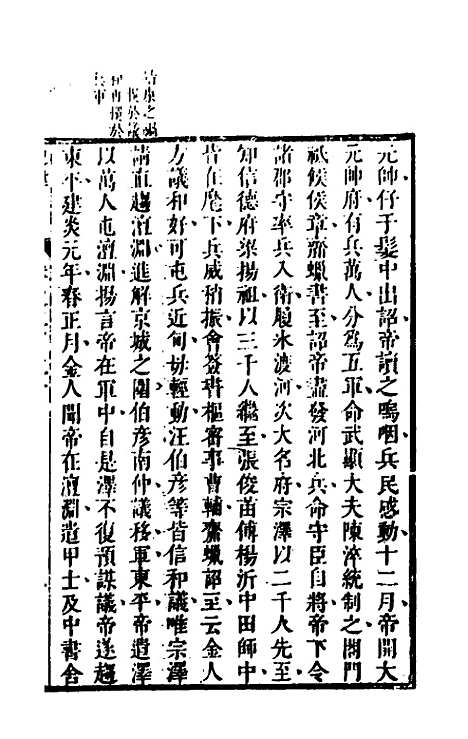 元帥仔于髮中出詔帝讀之嗚咽兵民感動十二月帝開大
元帥府有兵萬人分爲五軍命武顯大夫陳淬統制之閤門
祇候侯章齎蠟書至詔帝盡發河北兵命守臣自將帝下令
諸郡守率兵入衛履氷渡河次大名府宗澤以二千人先至
知信德府梁揚祖以三千人繼至張俊苗傅楊沂中田師中
皆在麾下兵威稍振會簽書樞密事曹輔齎蠟詔至云金人
方議和好可屯兵近甸毋輕動汪伯彥等皆信和議唯宗澤
請直趨澶淵進解京城之圍伯彥南仲議移軍東平帝遣澤
以萬人屯澶淵揚言帝在軍中自是澤不復預謀議帝遂趨
東平建炎元年春正月金人聞帝在澶淵遣甲士及中書舍
靖康之禍